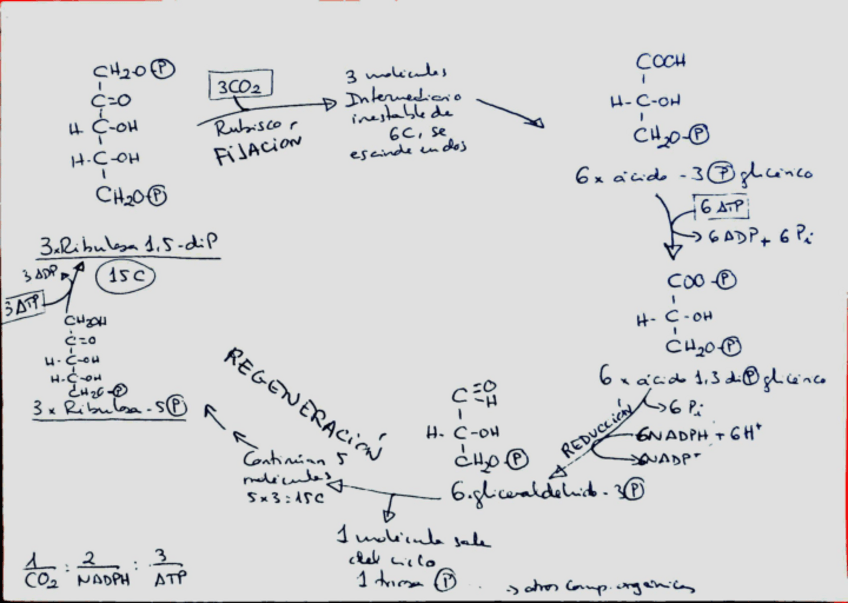 CH2O-Ⓟ
C=O
H-C-OH
H-C-OH
CH2O-Ⓟ
3xRibulosa 1,5-diP
15C
3CO2
Rubisco,
FIJACIÓN
3 moléculas
Intermediario
inestable de
6C, se
escinde en dos
COCH
H-C-OH
CH2O-Ⓟ
6x ácido-3Ⓟglicérico
6 ATP
6 ADP + 6 Pi
COO-Ⓟ
H-C-OH
CH2O-Ⓟ
6x ácido 1,3 diⓅglicérico
REDUCCIÓN
6 Pi
6NADPH + 6H+
6NADP+
C=O
H
H-C-OH
CH2O-Ⓟ
6.gliceraldehido-3Ⓟ
1 molécula sale
del ciclo
1 triosa Ⓟ
-> otros comp. orgánicos
Continúan 5
moléculas
5x3=15C
REGENERACIÓN
3 ADP
3 ATP
CH2OH
C=O
H-C-OH
H-C-OH
CH2O-Ⓟ
3x Ribulosa-5Ⓟ
1/CO2 : 2/NADPH : 3/ATP